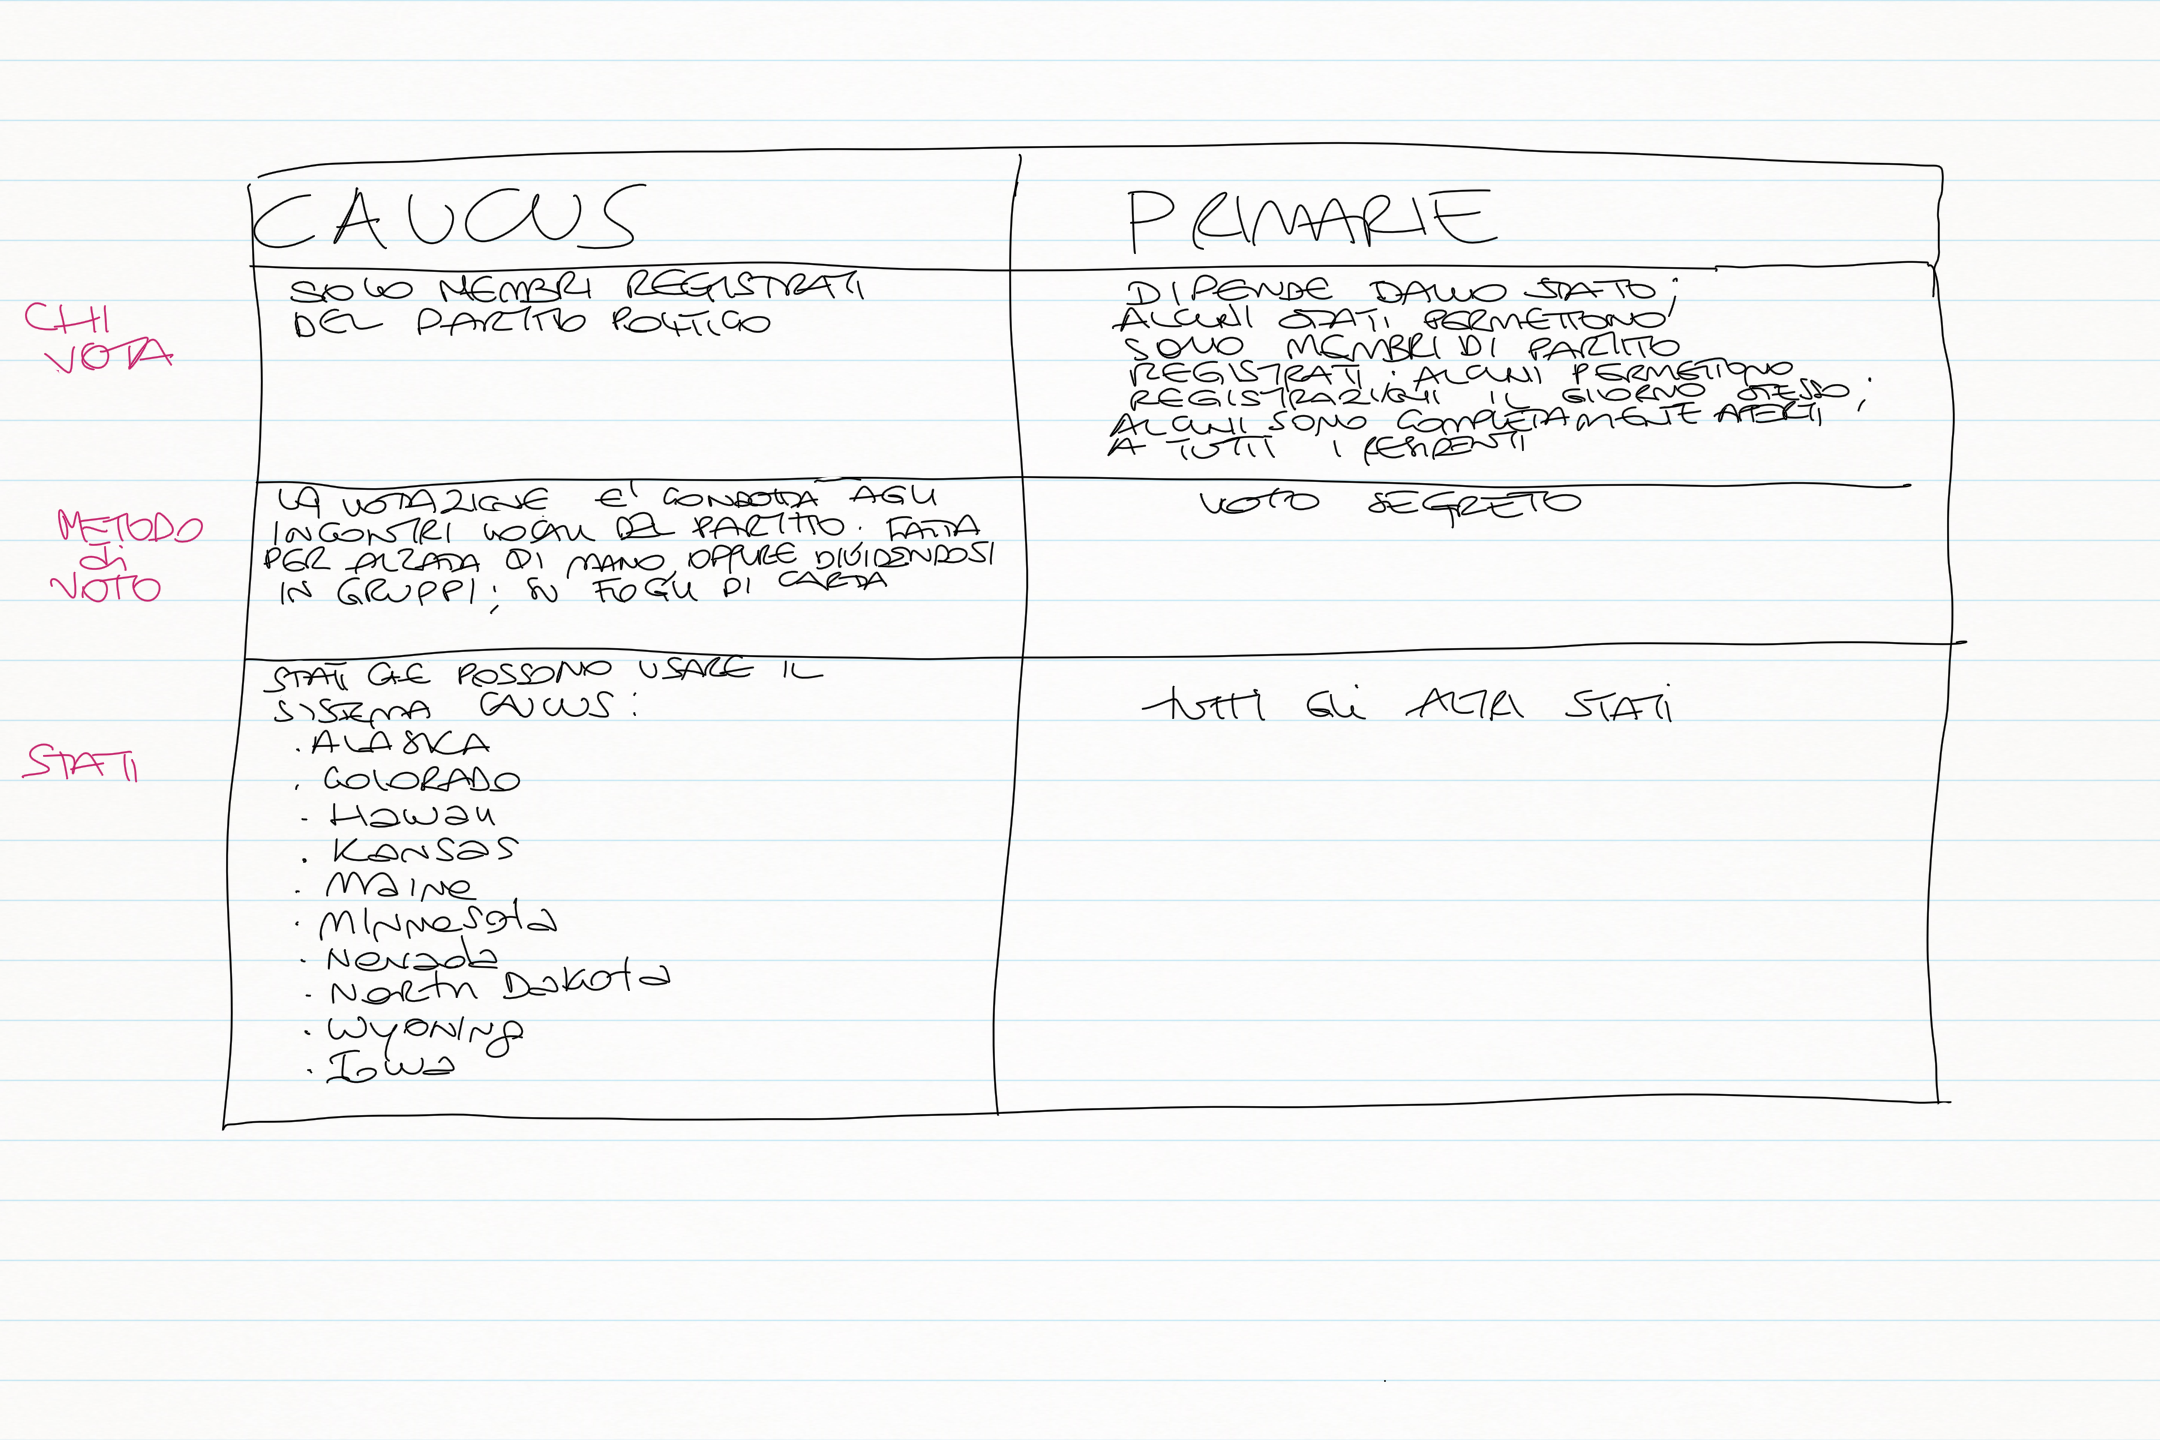 CAUCUS
PRIMARIE
CHI
VOTA
SOLO MEMBRI REGISTRATI
DEL PARTITO POLITICO
DIPENDE DALLO STATO;
ALCUNI STATI PERMETTONO
SOLO MEMBRI DI PARTITO
REGISTRATI; ALCUNI PERMETTONO
REGISTRAZIONI IL GIORNO STESSO;
ALCUNI SONO COMPLETAMENTE APERTI
A TUTTI I RESIDENTI
METODO
di
VOTO
LA VOTAZIONE E' CONDOTTA AGLI
INCONTRI LOCALI DEL PARTITO. FATTA
PER ALZATA DI MANO, OPPURE DIVIDENDOSI
IN GRUPPI; SU FOGLI DI CARTA
VOTO SEGRETO
STATI
STATI CHE POSSONO USARE IL
SISTEMA CAUCUS:
. ALASKA
. COLORADO
- Hawaii
. Kansas
. Maine
. Minnesota
. Nevada
- North Dakota
. Wyoning
. Iowa
tutti Gli ALTRI STATi